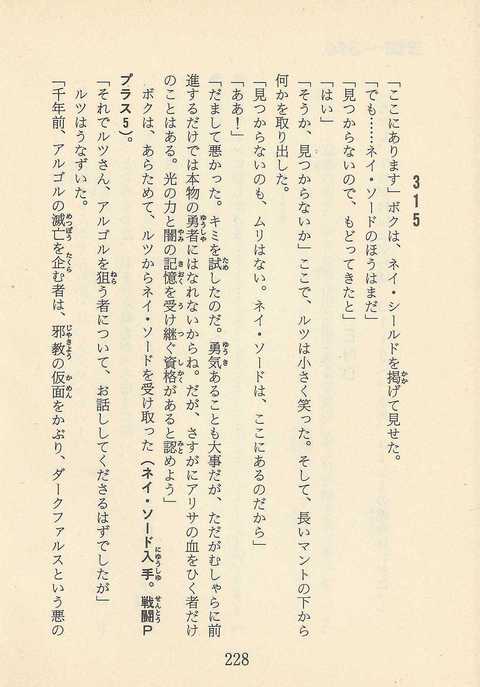 315
「ここにあります」ボクは、ネイ・シールドを掲げて見せた。
「でも……ネイ・ソードのほうはまだ」
「見つからないので、もどってきたと」
「はい」
「そうか、見つからないか」ここで、ルツは小さく笑った。そして、長いマントの下から
何かを取り出した。
「見つからないのも、ムリはない。ネイ・ソードは、ここにあるのだから」
「ああ！」
「だまして悪かった。キミを試したのだ。勇気あることも大事だが、ただがむしゃらに前
進するだけでは本物の勇者にはなれないからね。だが、さすがにアリサの血をひく者だけ
のことはある。光の力と闇の記憶を受け継ぐ資格があると認めよう」
ボクは、あらためて、ルツからネイ・ソードを受け取った（ネイ・ソード入手。戦闘P
プラス5）。
「それでルツさん、アルゴルを狙う者について、お話ししてくださるはずでしたが」
ルツはうなずいた。
「千年前、アルゴルの滅亡を企む者は、邪教の仮面をかぶり、ダークファルスという悪の
228